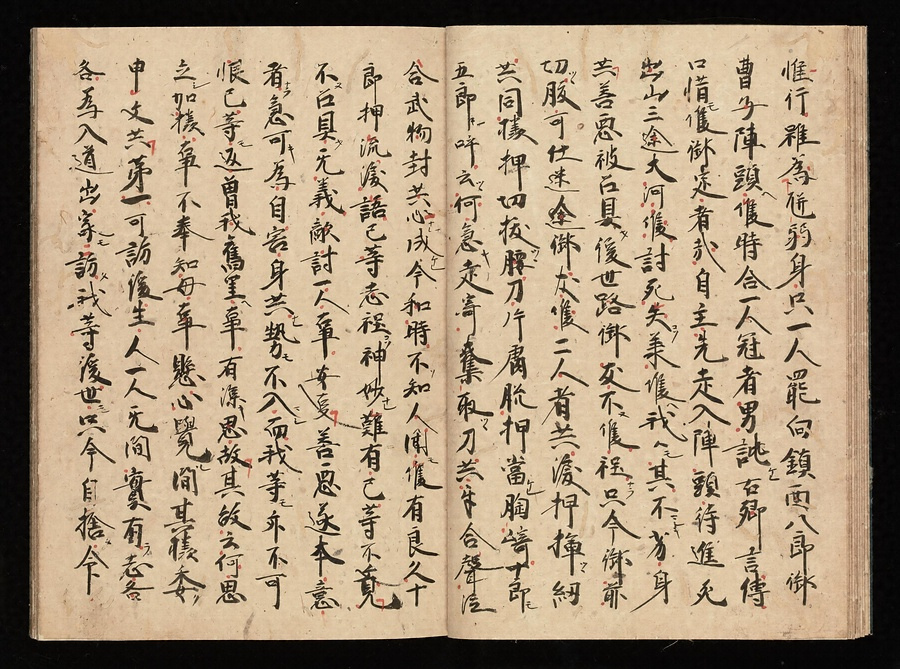 惟行雖為徒躬身只一人罷向鎮西八郎御
曹子陣頭隻時合一人冠者男誂右卿言傳
口惜隻御定者哉自主先走入陣頭待進死
出山三途大河隻討死失義隻我其不劣身
共善悪被召具後世路御友不隻程只今御前
切腹可仕迷途御友隻二人者共後押揮紐
共同様押切抜腰刀片膚脱押當胸崎十郎
五郎呼云何急走寄奪取刀共手合聲泣
合武物封共心成今和時不知人隻有良久十
郎押流涙語己等志程神妙難有己等不覚
不召具无義敵討一人輩善悪遂本意
者急可為自害身共勢不入而我等亦不可
恨己等返曽我舊里輩有深思故其故云何思
之加様輩不奉知母輩懸心覺間其様委
申文共第一可訪後生人一人无間有志各
各為入道出家訪我等後世只今自捨今